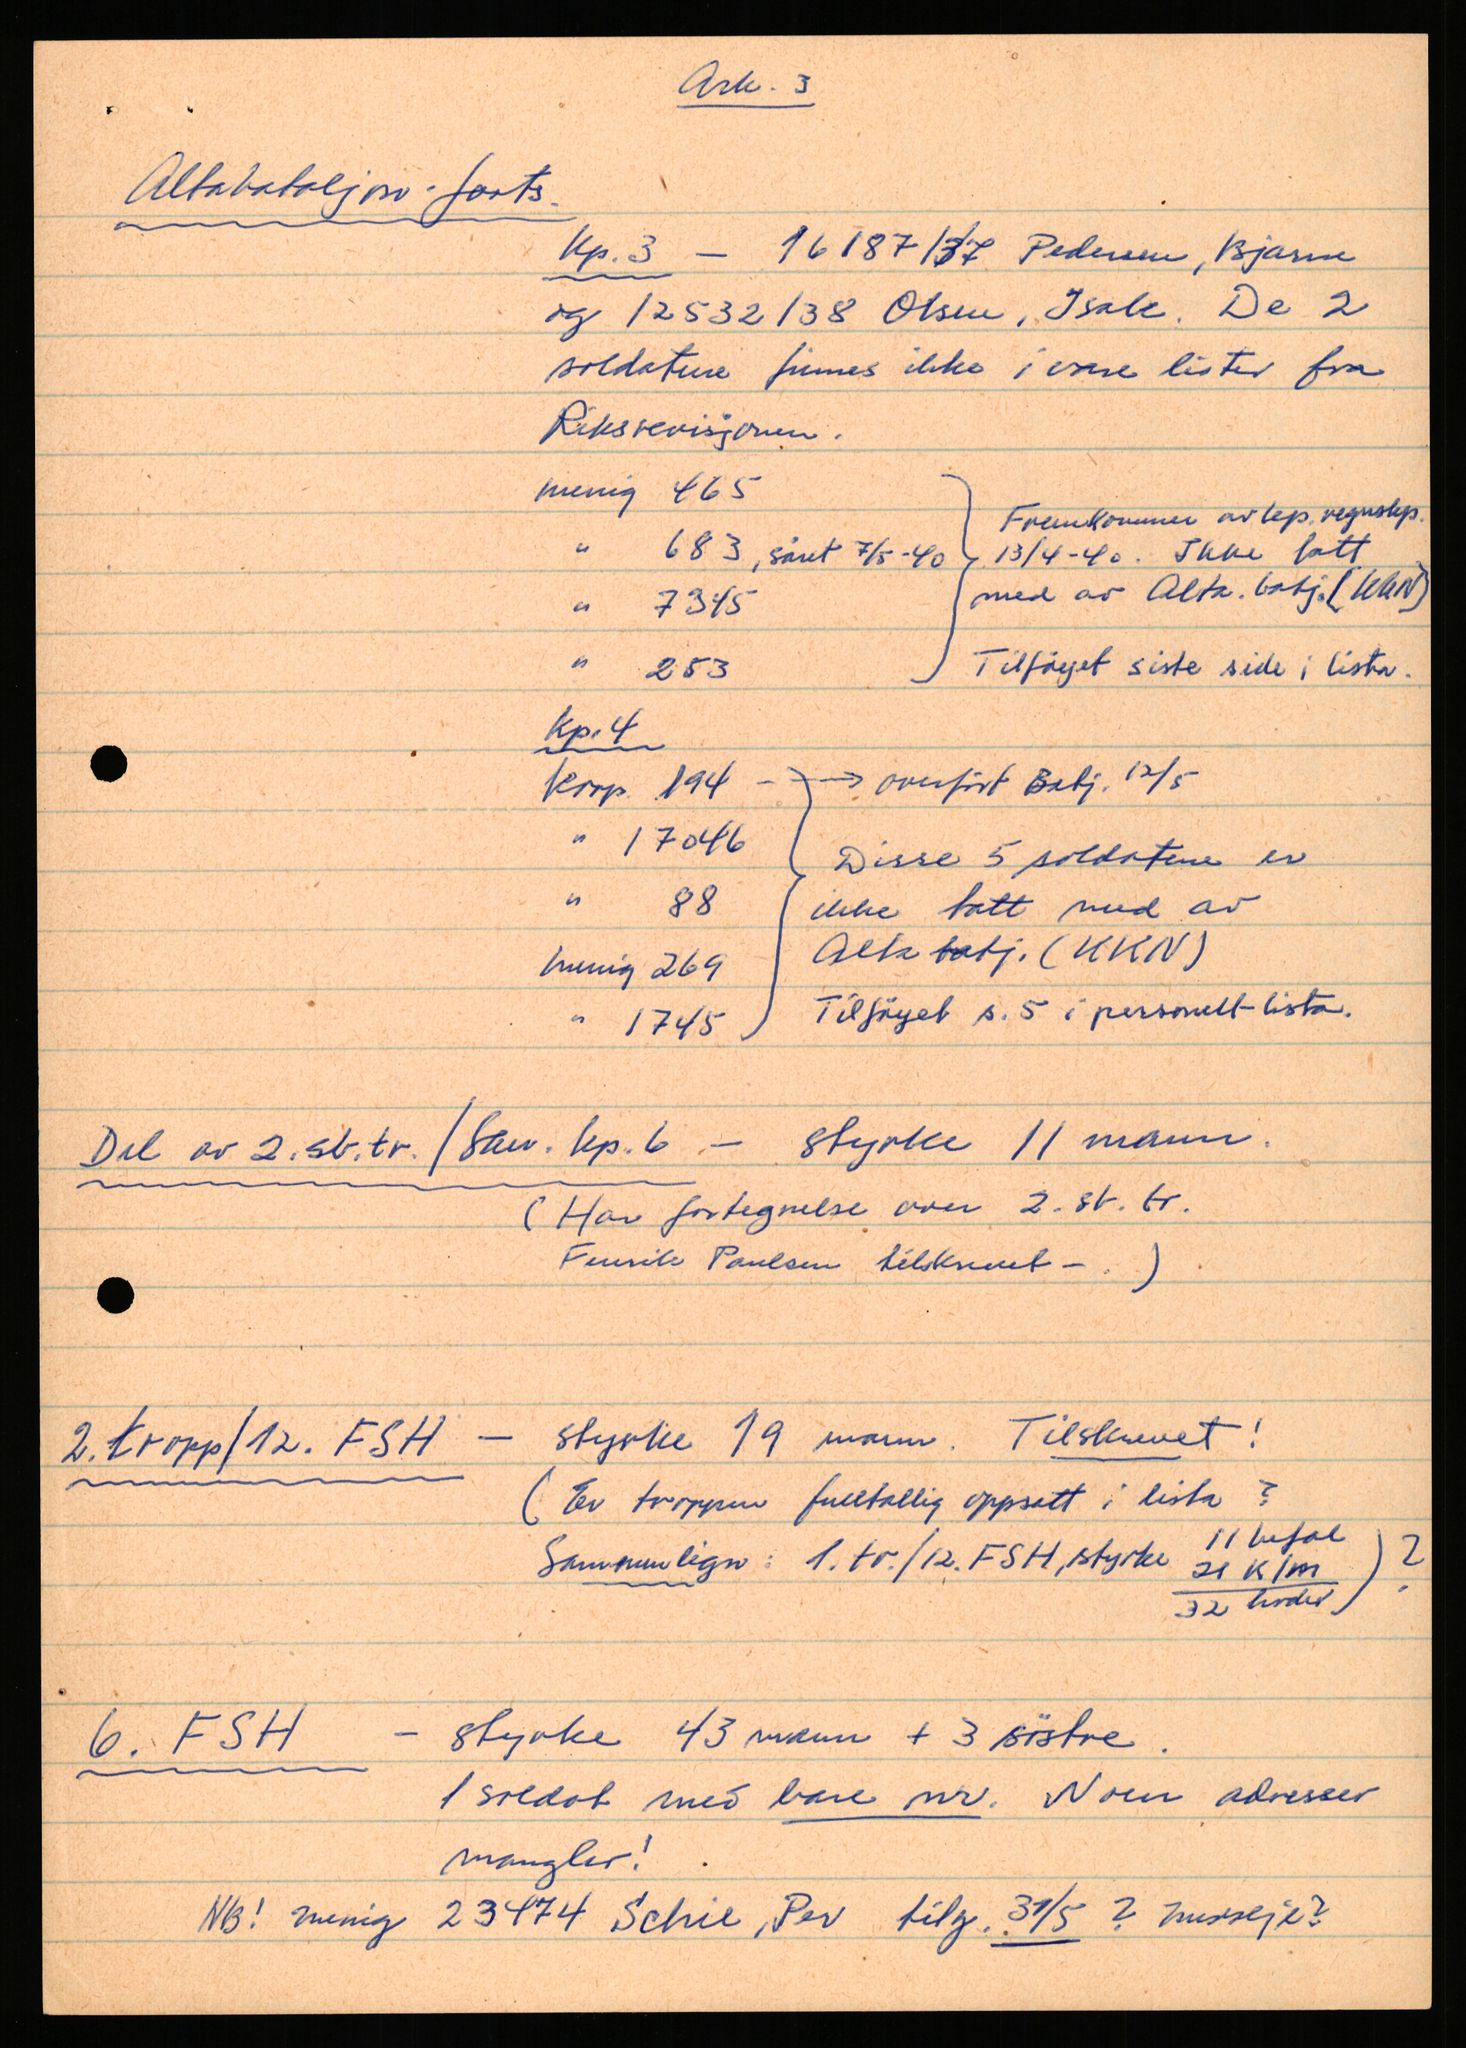 Ark. 3
Altabataljon - forts.
Kp. 3 — 16187/37 Pedersen, Bjarne
og 12532/38 Olsen, Isak. De 2
soldatene finnes ikke i våre lister fra
Riksrevisjonen.
menig 465
" 683, såret 7/5-40
" 7345
" 253
Fremkommer av kp. regnskp.
13/4-40. Ikke tatt
med av Alta. batj. (KKN)
Tilføyet siste side i lista.
Kp. 4
Korp. 194 - → overført Batj. 12/5
" 17046
" 88
menig 269
" 1745
Disse 5 soldatene er
ikke tatt med av
Alta batj. (KKN)
Tilføyet s. 5 i personell-lista.
Del av 2. st. tr. / San. kp. 6 — styrke 11 mann.
(Har fortegnelse over 2. st. tr.
Fenrik Paulsen tilskrevet - . )
2. tropp/12. FSH — styrke 19 mann. Tilskrevet!
(Er troppen fulltallig oppsatt i lista ?
Sammenlign: 1. tr./12. FSH, styrke 11 befal
21 K/m
32 hoder ) ?
6. FSH — styrke 43 mann + 3 söstre.
1 soldat med bare nr. Noen adresser
mangler! .
NB! menig 23474 Schie, Per tilg. 31/5 ?